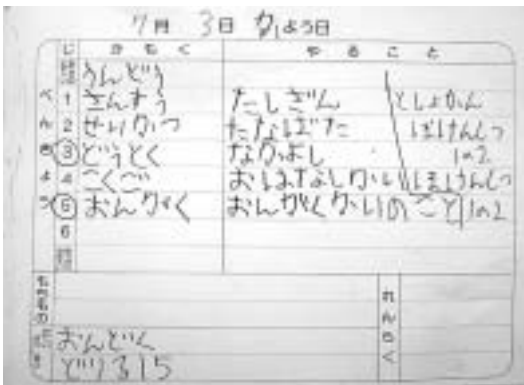 7月 3日 かようび日
じ かもく やること
うんどう
1 さんすう たしざん としょかん
2 せいかつ たなばた ほけんしつ
③ どうとく なかよし 1の2
4 こくご おはなしかい ほけんしつ
⑤ おんがく おんがくかいのこと 1の2
6
べんきょう
もちもの
れんらく
おんどく
どり315